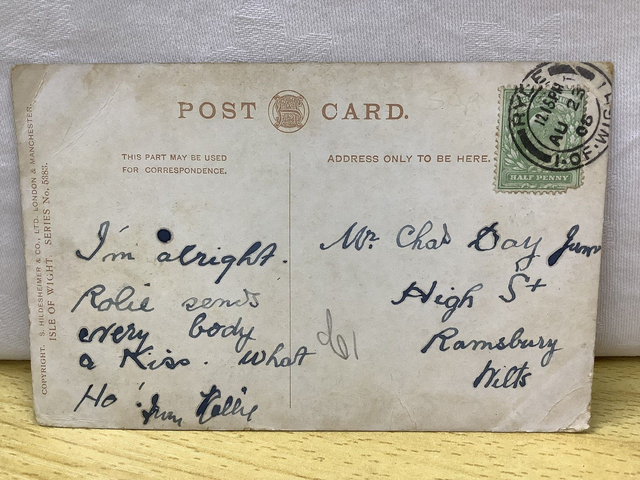 POST CARD.
THIS PART MAY BE USED
FOR CORRESPONDENCE.
ADDRESS ONLY TO BE HERE.
HALF PENNY
RYDE
I. OF. WIGHT
12.15PM
AU 23
06
COPYRIGHT. S. HILDESHEIMER & CO., LTD. LONDON & MANCHESTER.
ISLE OF WIGHT SERIES No. 5383.
I'm alright.
Rolie sends
every body
a Kiss. What
Ho!
Mr. Chas Day Junr
High St
Ramsbury
Wilts